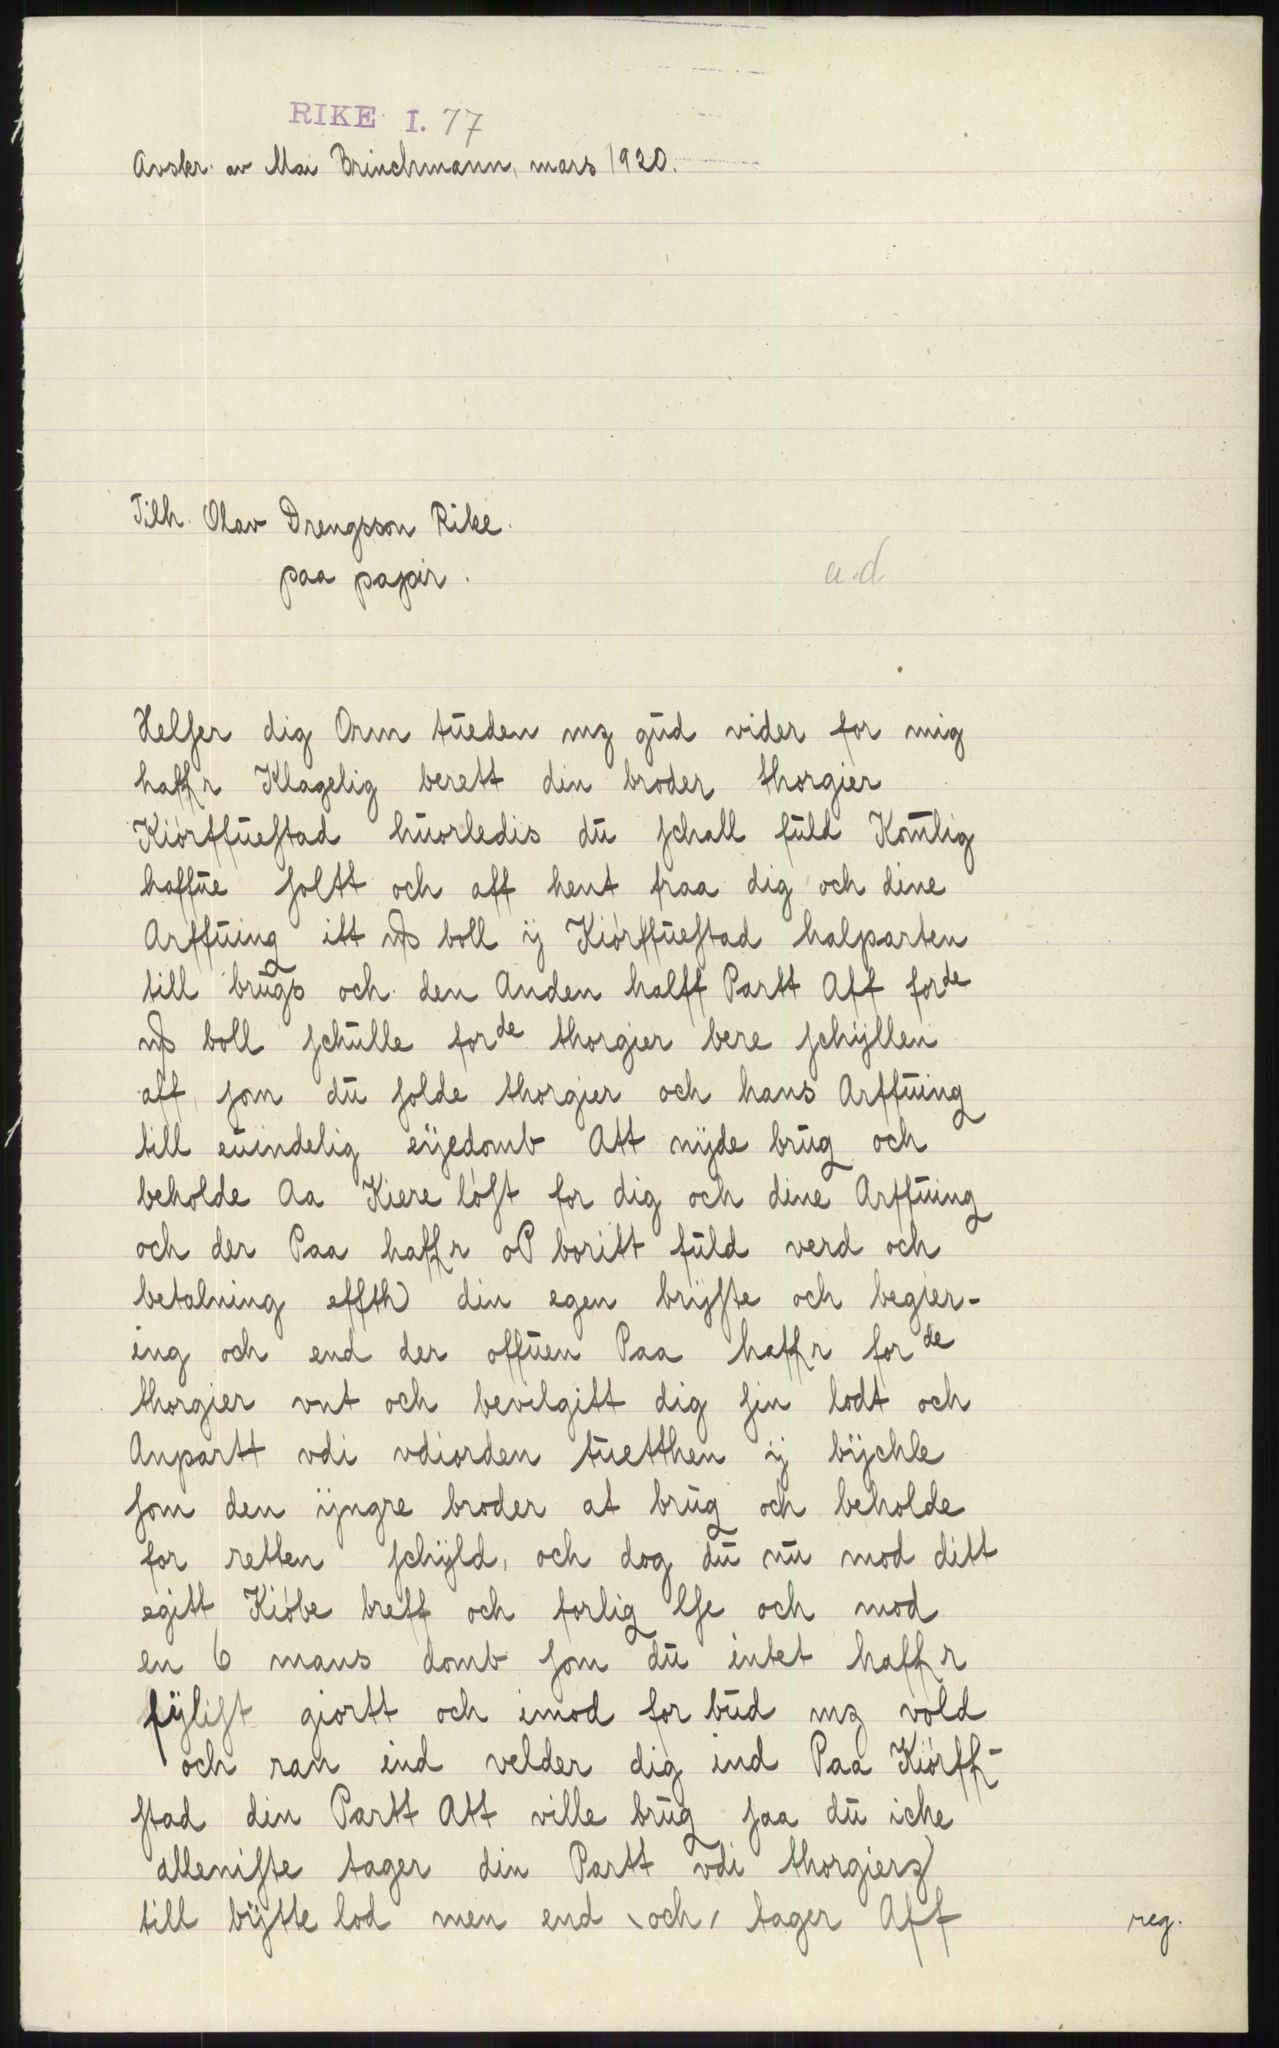 RIKE I. 77
Avskr. av Mai Brinchmann, mars 1920.
Tilh. Olav Drengsson Rike.
paa papir.
u.d.
Helser dig Orm tueden mz gud vider for mig
haffr Klagelig berett din broder thorgier
Kiørffuestad huorledis du schall fuld Komlig
haffue soltt och aff hent fraa dig och dine
Arffuing itt boll ij Kiørffuestad halparten
till brugs och den Anden halff Partt Aff forde
boll schulle forde thorgier bere schyllen
aff som du solde thorgier och hans Arffuing
till euindelig eyedomb Att nyde brug och
beholde Aa Kiere løst for dig och dine Arffuing
och der Paa haffr oP boritt fuld verd och
betalning effth din egen bryste och begier-
ing och end der offuen Paa haffr forde
thorgier vnt och bevilgitt dig sin lodt och
Anpartt vdi vdiorden tuetthen ij bychle
som den yngre broder at brug och beholde
for retten schyld, och dog du nu mod ditt
egitt Kiøbe breff och forlig lse och mod
en 6 mans domb som du intet haffr
fylist giortt och imod for bud mz vold
och ran ind velder dig ind Paa Kiørff-
stad din Partt Att ville brug saa du iche
alleniste tager din Partt vdi thorgierz
till bytte lod men end och tager Aff
reg.